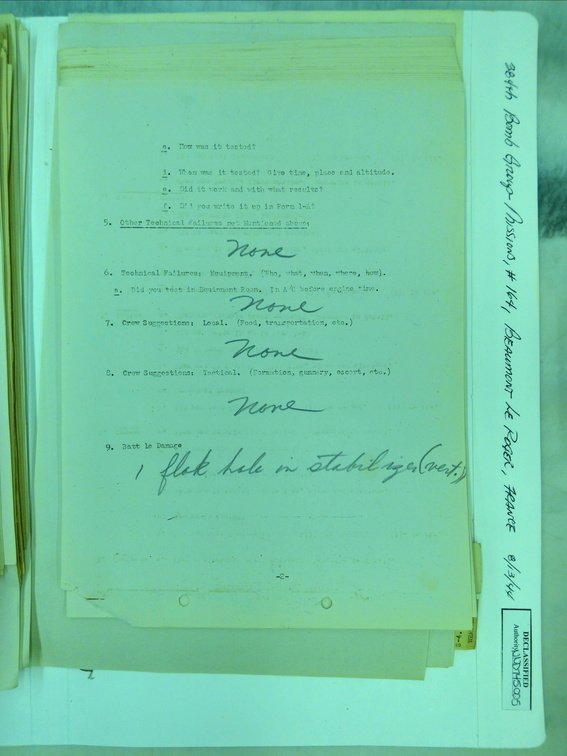 c. How was it tested?
d. When was it tested? Give time, place and altitude.
e. Did it work and with what results?
f. Did you write it up in Form 1-A?
5. Other Technical Failures not Mentioned above:
None
6. Technical Failures: Equipment. (Who, what, when, where, how).
a. Did you test in Equipment Room. In A/C before engine time.
None
7. Crew Suggestions: Local. (Food, transportation, etc.)
None
8. Crew Suggestions: Tactical. (Formation, gunnery, escort, etc.)
None
9. Batt le Damage
1 flak hole in stabilizer (vert.)
-2-
384th Bomb Group Missions, # 164, Beaumont Le Roger, France 8/13/44
DECLASSIFIED
Authority NND745005